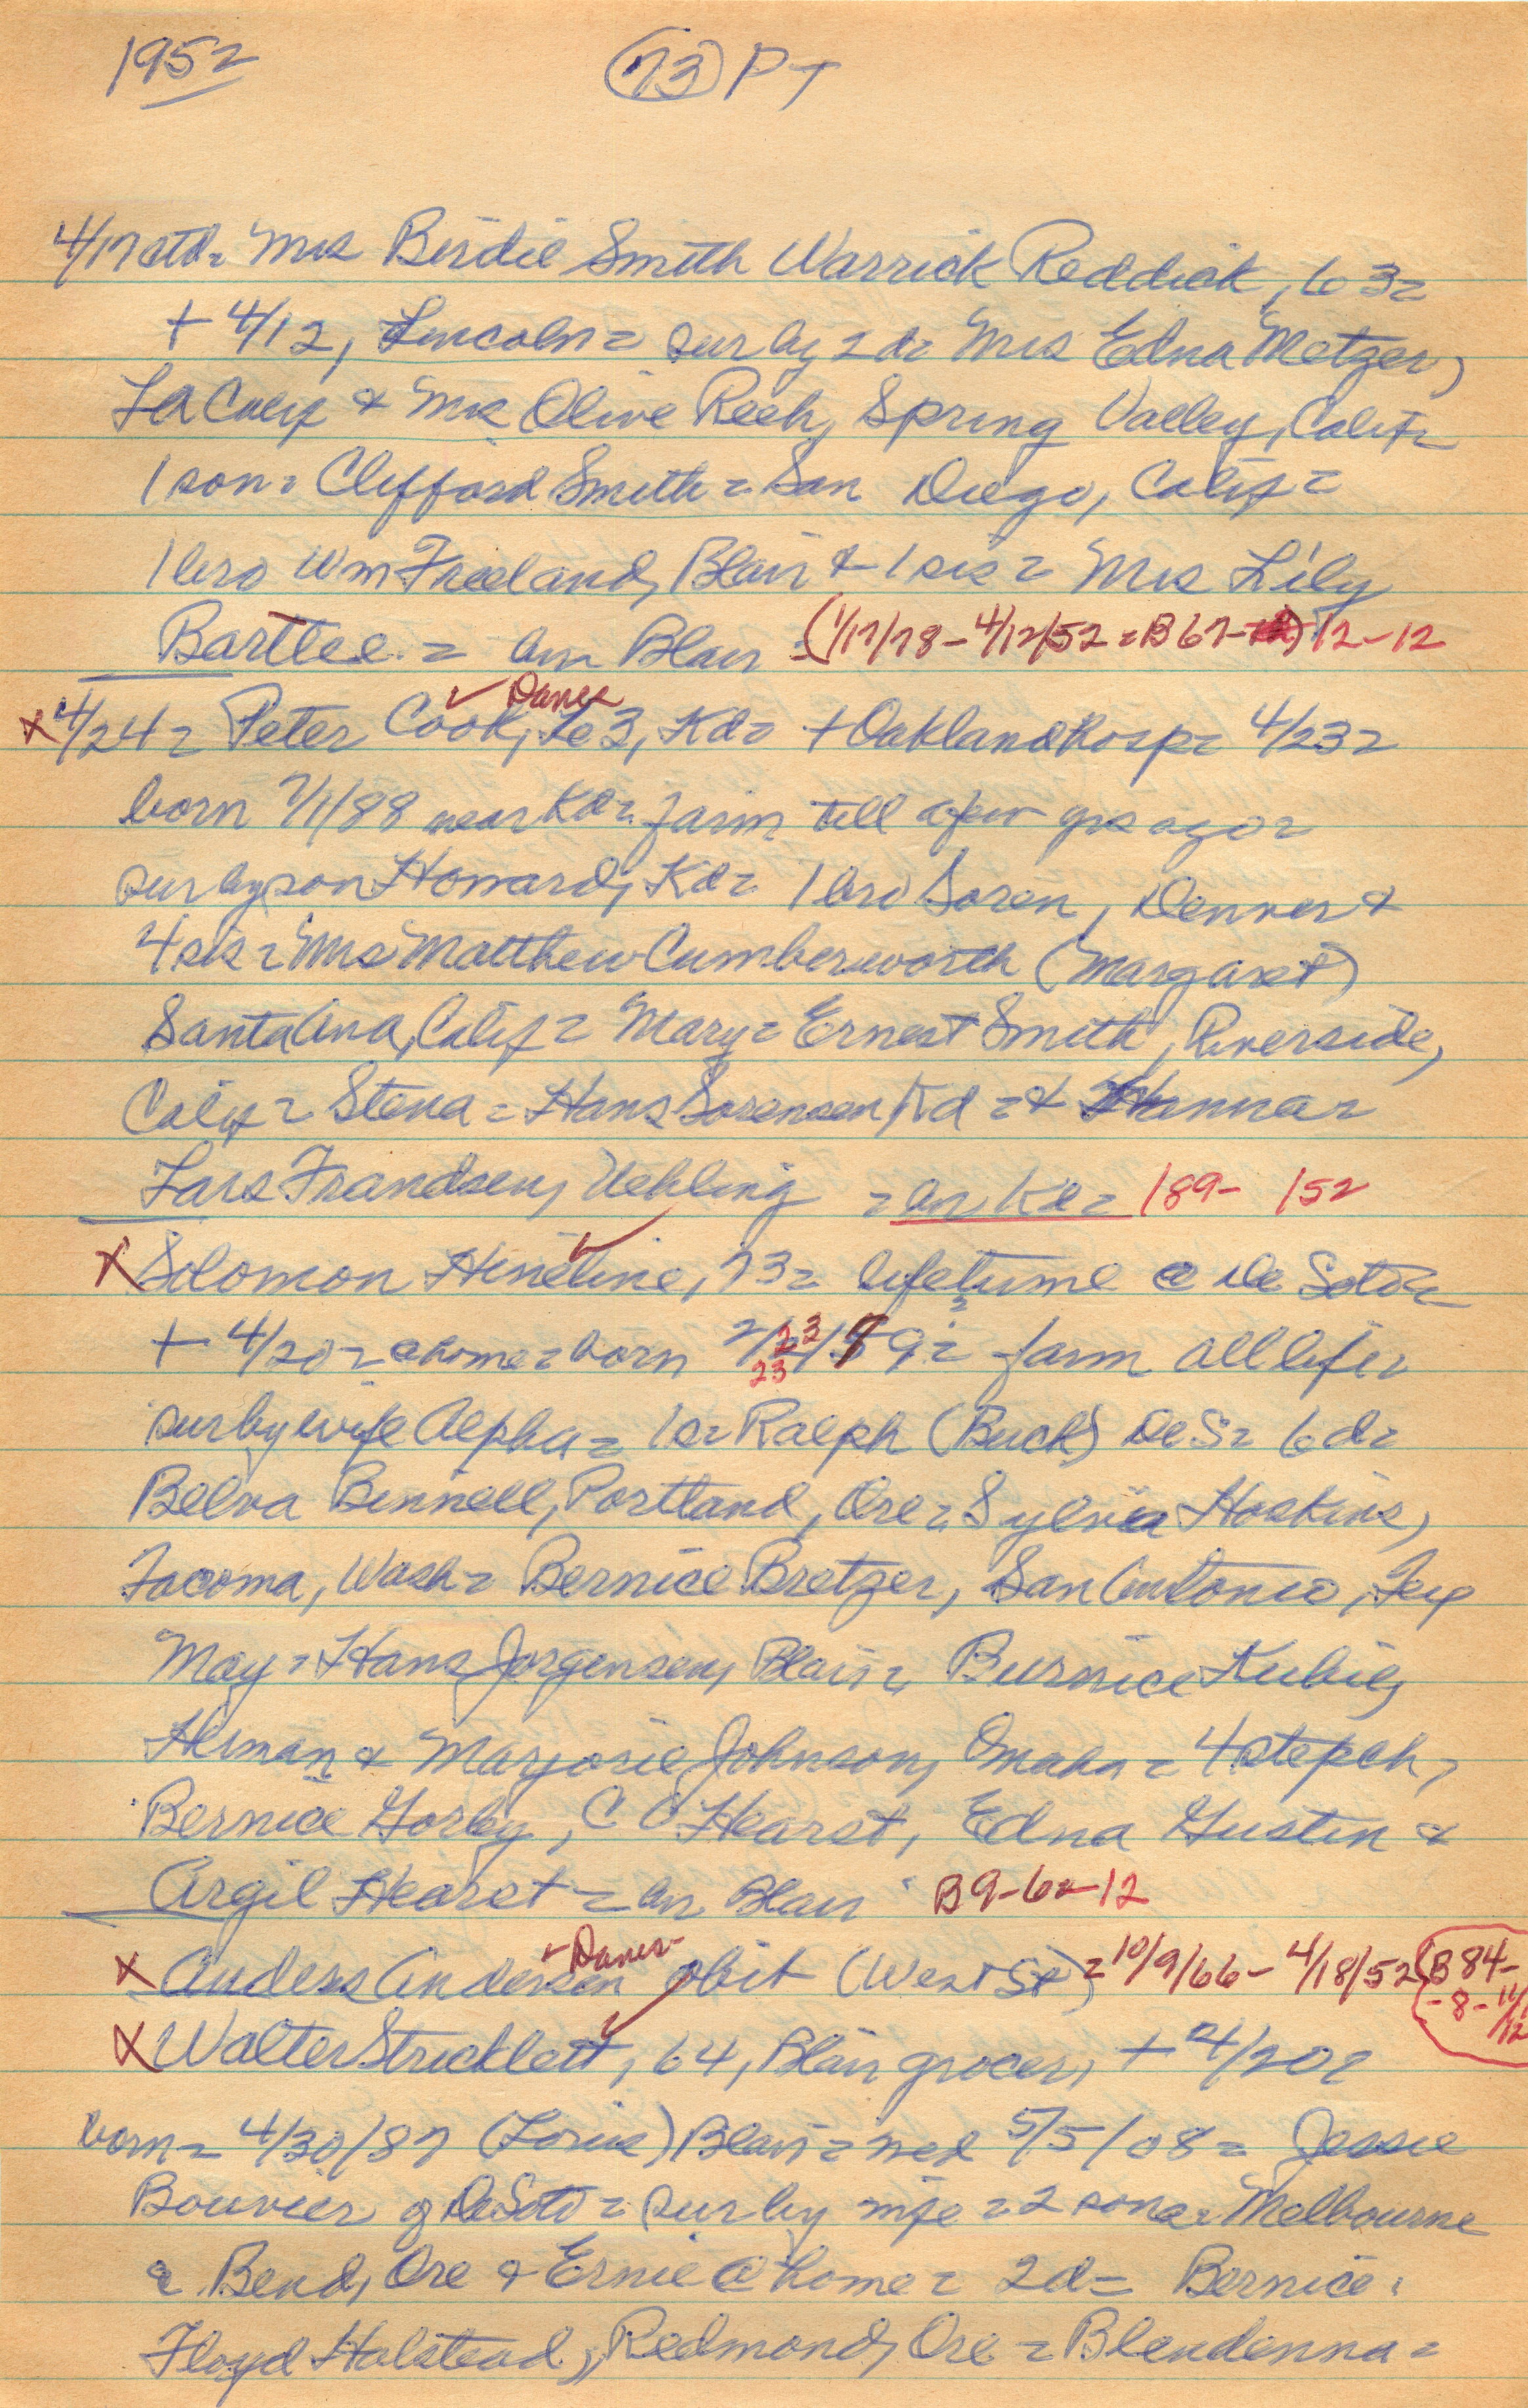 1952 (73) PT
4/17 ctd= Mrs Birdie Smith Warrick Reddick, 63=
+ 4/12, Lincoln= sur by 2 d= Mrs Edna Metzger,
LA Calif & Mrs Olive Reeh, Spring Valley, Calif=
1 son= Clifford Smith= San Diego, Calif=
1 bro Wm Freeland, Blair & 1 sis= Mrs Lily
Barttee.= bur Blair (1/17/78-4/12/52=B67- ) 12-12
✓ Danes
x 4/24= Peter Cook, 63, Kd= + Oakland Hosp= 4/23=
born 7/1/88 near Kd= farm till a few yrs ago=
sur by son Howard, Kd= 1 bro Soren, Denver &
4 sis= Mrs Matthew Cumberworth (Margaret)
Santa Ana, Calif= Mary= Ernest Smith, Riverside,
Calif= Stena= Hans Sorensen, Kd=& Hanna=
Lars Frandsen, Uehling =bur Kd= 189- 152
x Solomon Hineline, 73= lifetime @ De Soto=
+ 4/20= @ home= born 2/23/79= farm all life=
23
sur by wife Alpha= 1 s= Ralph (Buck) De S= 6 d=
Belva Bennell, Portland, Ore= Sylvia Hoskins,
Tacoma, Wash= Bernice Bretzer, San Antonio, Tex
May= Hans Jorgensen, Blair= Burnice Kubie,
Herman & Marjorie Johnson, Omaha= 4 stepch,
Bernice Gorby, C C Hearst, Edna Gustin &
Argil Hearst= bur Blair B9-6-12
✓ Danes
x Anders Andersen obit (West St)=10/9/66-4/18/52 (B84-
-8-11/12
x Walter Stricklett, 64, Blair grocer, + 4/20=
born= 4/30/87 (Lorius) Blair= wed 5/5/08= Jessie
Bouvier of DeSoto= sur by wife= 2 sons= Melbourne
@ Bend, Ore & Ernie @ home= 2d= Bernice=
Floyd Halstead, Redmond, Ore= Blendenna=